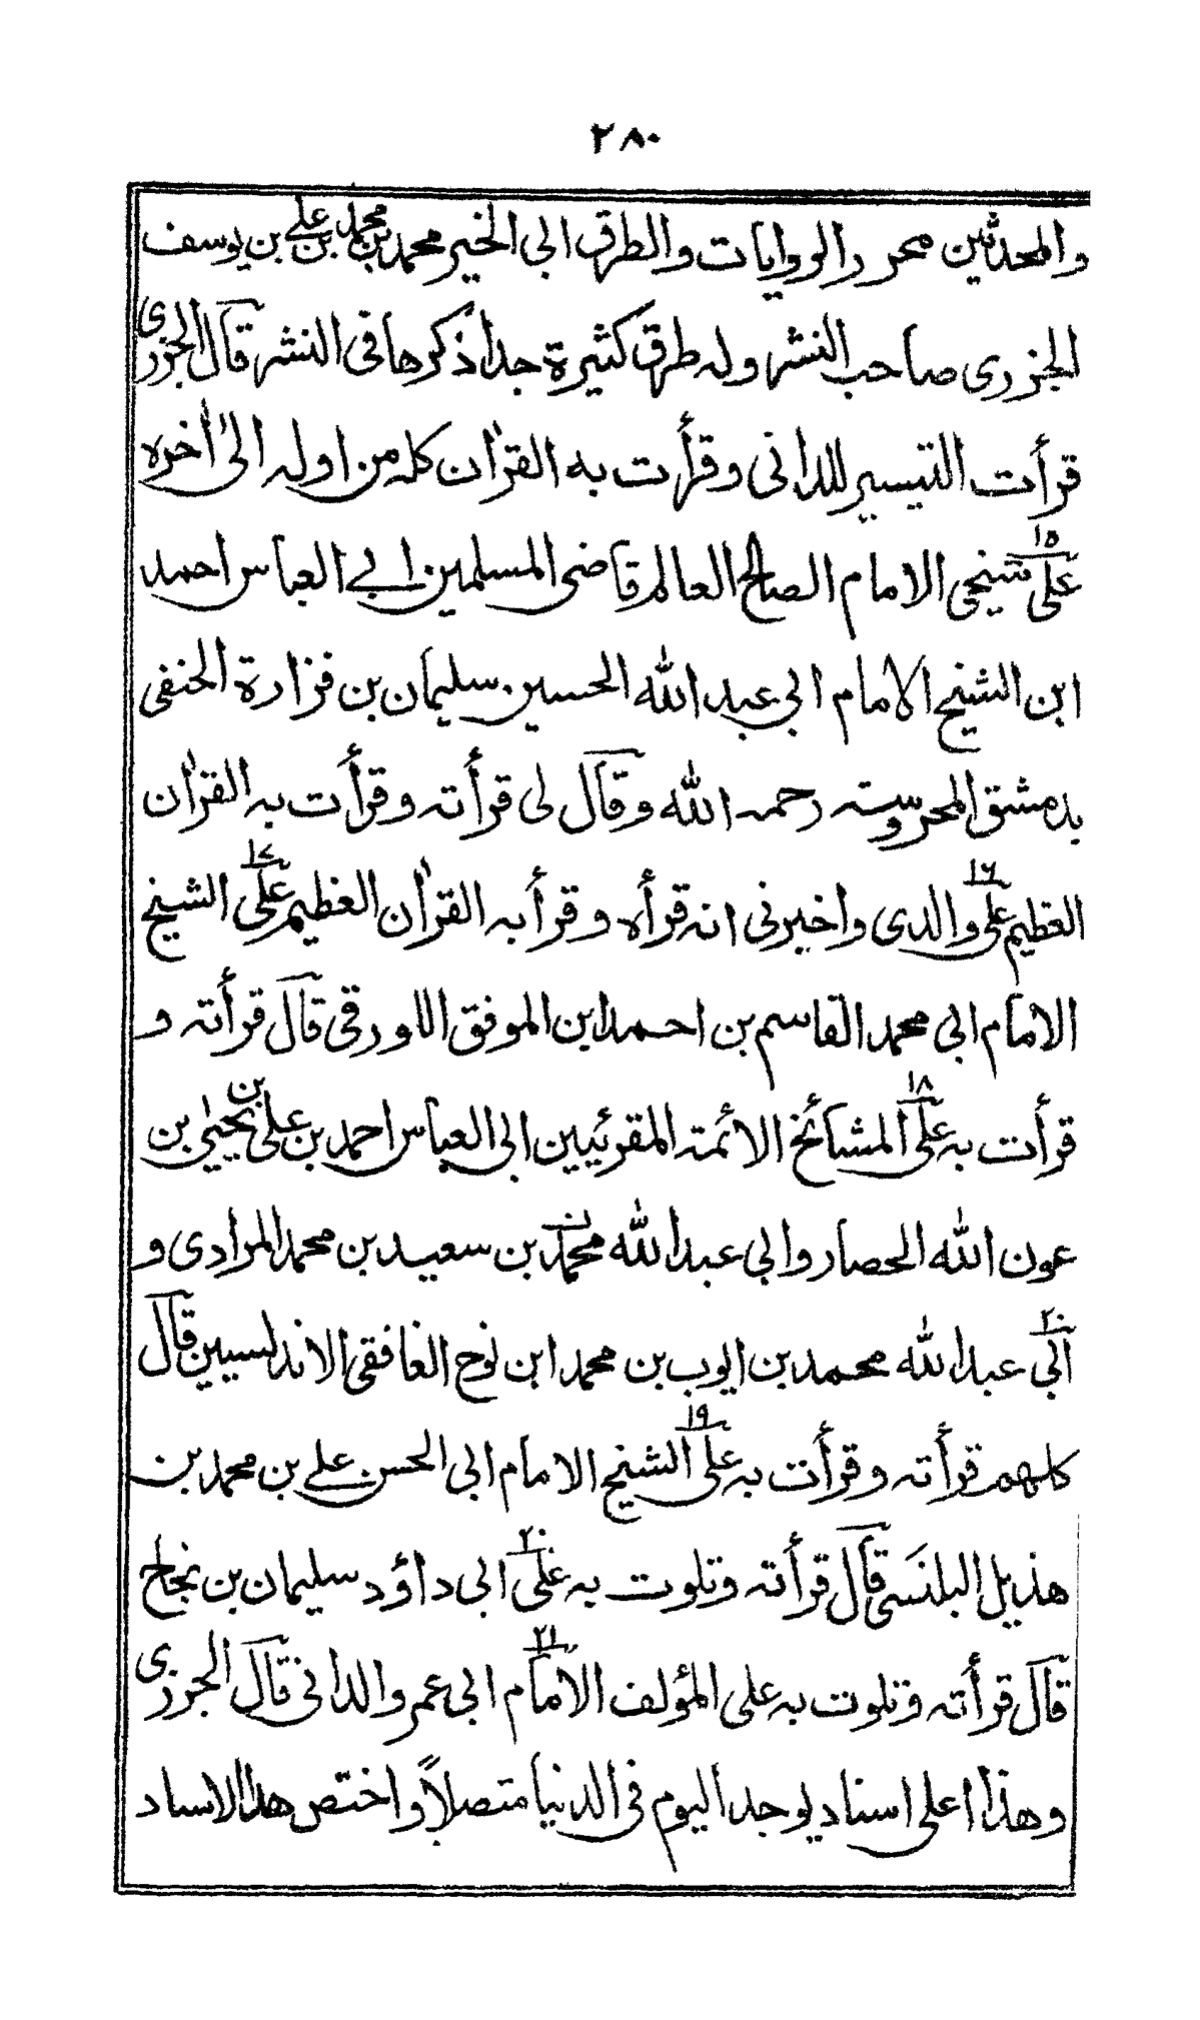 ٢٨٠
والمحدثين محرر الروايات والطرق ابى الخير محمد بن محمد بن علے بن يوسف
الجزرى صاحب النشر وله طرق كثيرة جدا ذكرها فى النشر قال الجزرى
قرأت التيسير للدانى وقرأت به القراٰن كله من اوله الىٰ اٰخره
١٥
على شيخى الامام الصالح العالم قاضى المسلمين ابے العباس احمد
ابن الشيخ الامام ابى عبد الله الحسين بن سليمان بن فزارة الحنفى
بدمشق المحروسته رحمه الله وقال لى قرأته وقرأت به القراٰن
١٦ ١٧
العظيم على والدى واخبرنى انه قرأه وقرأ به القراٰن العظيم على الشيخ
الامام ابى محمد القاسم بن احمد ابن الموفق اللاورقى قال قرأته و
١٨
قرأت به على المشائخ الائمة المقرئيين ابى العباس احمد بن على بن يحيىٰ بن
عون الله الحصار وابى عبد الله محمد بن سعيد بن محمد المرادى و
٢٠
ابى عبد الله محمد بن ايوب بن محمد ابن نوح الغافقى الاندلسيين قال
١٩
كلهم قرأته وقرأت به على الشيخ الامام ابى الحسن علے بن محمد بن
٢٠
هذيل البلنسى قال قرأته وتلوت به على ابى داؤد سليمان بن نجاح
٢١
قال قرأته وتلوت به على المؤلف الامام ابى عمرو الدانى قال الجزرى
وهذا اعلى اسناد يوجد اليوم فى الدنيا متصلاً واختص هذا الاسناد